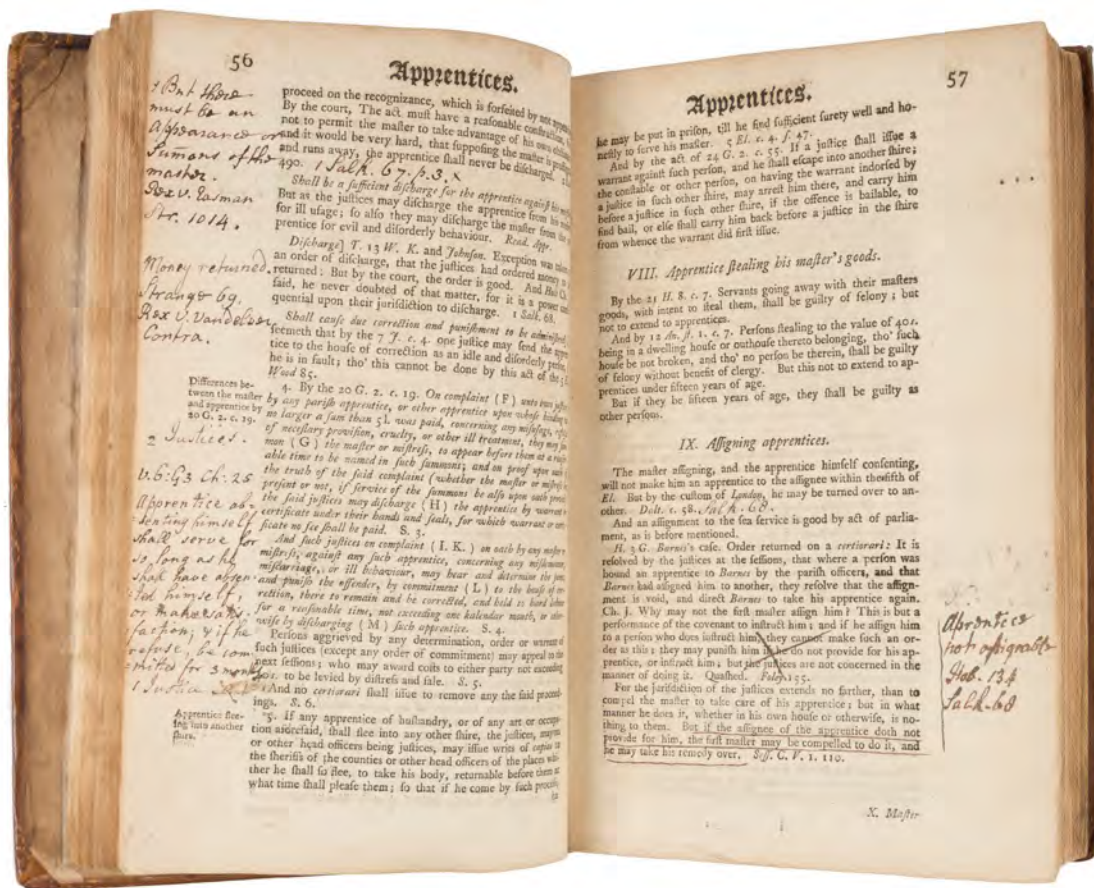 56
Apprentices.
proceed on the recognizance, which is forfeited by not
By the court, The act must have a reasonable construction,
not to permit the master to take advantage of his own
and it would be very hard, that supposing the master is
and runs away, the apprentice shall never be discharged.
490. 1 Salk. 67. p. 3. x
Shall be a sufficient discharge for the apprentice against his
But as the justices may discharge the apprentice from his
for ill usage; so also they may discharge the master from the
prentice for evil and disorderly behaviour. Read. Appr.
Discharge] T. 13 W. K. and Johnson. Exception was
an order of discharge, that the justices had ordered money
returned: But by the court, the order is good. And Holt Ch.
said, he never doubted of that matter, for it is a power
quential upon their jurisdiction to discharge. 1 Salk. 68.
Shall cause due correction and punishment to be administred
seemeth that by the 7 J. c. 4. one justice may send the
tice to the house of correction as an idle and disorderly
he is in fault; tho' this cannot be done by this act of the 5
Wood 85.
4. By the 20 G. 2. c. 19. On complaint (F) unto two
by any parish apprentice, or other apprentice upon whose binding
no larger a sum than 5 l. was paid, concerning any misusage,
of necessary provision, cruelty, or other ill treatment, they may
mon (G) the master or mistress, to appear before them at a
able time to be named in such summons; and on proof upon oath
the truth of the said complaint (whether the master or mistress
present or not, if service of the summons be also upon oath
the said justices may discharge (H) the apprentice by warrant
certificate under their hands and seals, for which warrant or
ficate no fee shall be paid. S. 3.
And such justices on complaint (I. K.) on oath by any master
mistress, against any such apprentice, concerning any
miscarriage, or ill behaviour, may hear and determin the
and punish the offender, by commitment (L) to the house of
rection, there to remain and be corrected, and held to hard labour
for a reasonable time, not exceeding one kalendar month, or
wise by discharging (M) such apprentice. S. 4.
Persons aggrieved by any determination, order or warrant
such justices (except any order of commitment) may appeal to the
next sessions; who may award costs to either party not exceeding
to be levied by distress and sale. S. 5.
And no certiorari shall issue to remove any the said
ings. S. 6.
5. If any apprentice of husbandry, or of any art or
tion aforesaid, shall flee into any other shire, the justices,
or other head officers being justices, may issue writs of capias to
the sheriffs of the counties or other head officers of the places
ther he shall so flee, to take his body, returnable before them at
what time shall please them; so that if he come by such
x But there
must be an
Appearance or
Sumons of the
master.
Rex v.
Str. 1014.
Money returned.
Strange 69.
Rex v. Vandeleer
Contra.
Differences be-
tween the master
and apprentice by
20 G. 2. c. 19.
2 Justices.
v. 6: G3 Ch: 25
Apprentice ab-
senting himself
shall serve for
so long as he
shall have absen-
ted himself,
or make satis-
faction; & if he
refuse, be com-
mitted for 3 months
1 Justice
Apprentice flee-
ing into another
shire.
57
Apprentices.
he may be put in prison, till he find sufficient surety well and ho-
nestly to serve his master. 5 El. c. 4. s. 47.
And by the act of 24 G. 2. c. 55. If a justice shall issue a
warrant against such person, and he shall escape into another shire;
the constable or other person, on having the warrant indorsed by
a justice in such other shire, may arrest him there, and carry him
before a justice in such other shire, if the offence is bailable, to
find bail, or else shall carry him back before a justice in the shire
from whence the warrant did first issue.
VIII. Apprentice stealing his master's goods.
By the 21 H. 8. c. 7. Servants going away with their masters
goods, with intent to steal them, shall be guilty of felony; but
not to extend to apprentices.
And by 12 An. st. 1. c. 7. Persons stealing to the value of 40 s.
being in a dwelling house or outhouse thereto belonging, tho' such
house be not broken, and tho' no person be therein, shall be guilty
of felony without benefit of clergy. But this not to extend to ap-
prentices under fifteen years of age.
But if they be fifteen years of age, they shall be guilty as
other persons.
IX. Assigning apprentices.
The master assigning, and the apprentice himself consenting,
will not make him an apprentice to the assignee within the fifth of
El. But by the custom of London, he may be turned over to an-
other. Dalt. c. 58. Salk. 68.
And an assignment to the sea service is good by act of parlia-
ment, as is before mentioned.
H. 3 G. Barnes's case. Order returned on a certiorari: It is
resolved by the justices at the sessions, that where a person was
bound an apprentice to Barnes by the parish officers, and that
Barnes had assigned him to another, they resolve that the assign-
ment is void, and direct Barnes to take his apprentice again.
Ch. J. Why may not the first master assign him? This is but a
performance of the covenant to instruct him; and if he assign him
to a person who does instruct him, they cannot make such an or-
der as this; they may punish him if he do not provide for his ap-
prentice, or instruct him; but the justices are not concerned in the
manner of doing it. Quashed. Foley 155.
For the jurisdiction of the justices extends no farther, than to
compel the master to take care of his apprentice; but in what
manner he does it, whether in his own house or otherwise, is no-
thing to them. But if the assignee of the apprentice doth not
provide for him, the first master may be compelled to do it, and
he may take his remedy over. Sess. C. V. 1. 110.
X. Master
Aprentice
not assignable
Hob. 134
Salk. 68